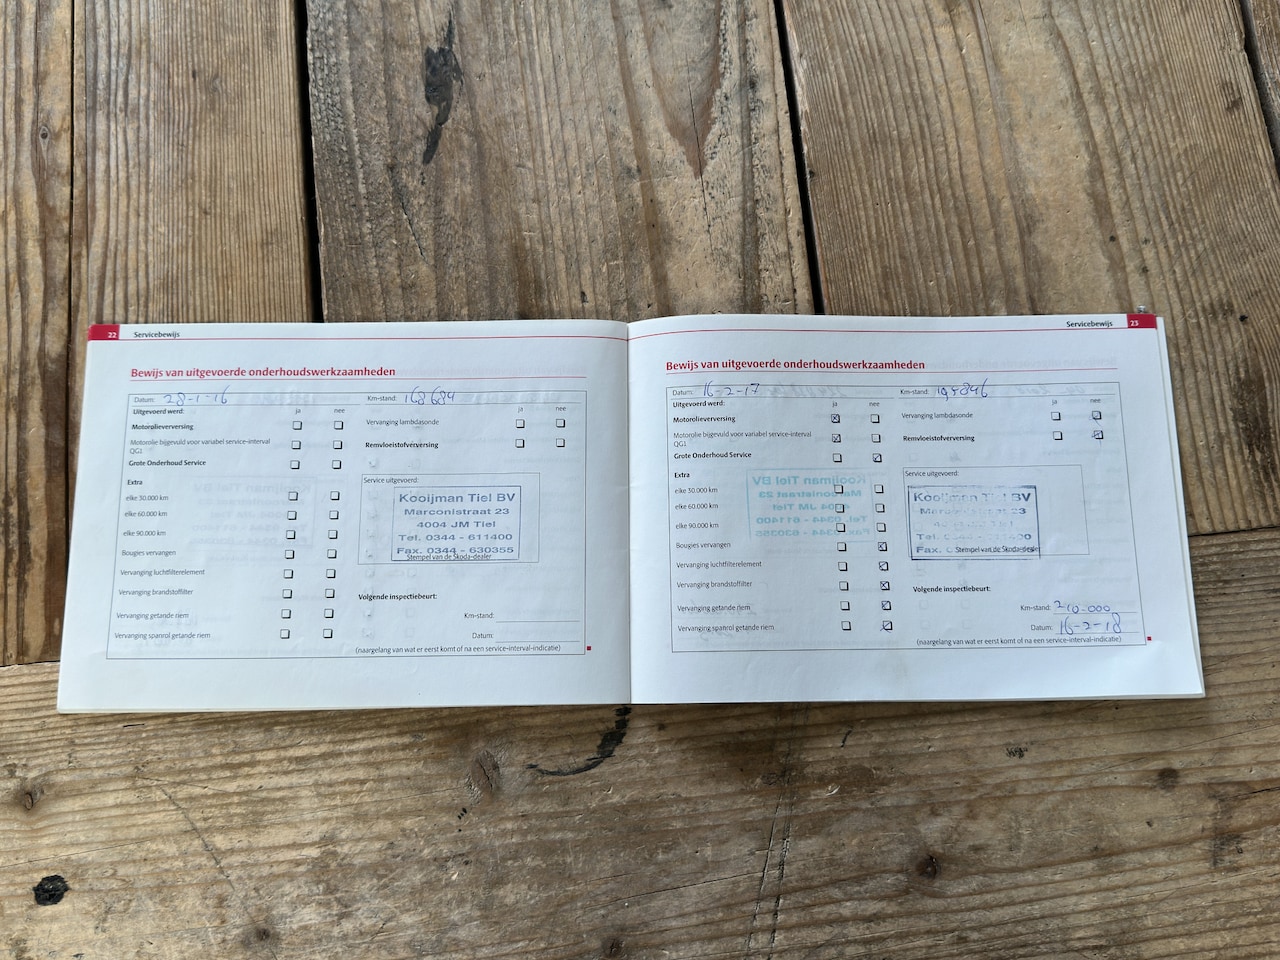 22 Servicebewijs
Bewijs van uitgevoerde onderhoudswerkzaamheden
Datum: 28-1-16 Km-stand: 168684
Uitgevoerd werd: ja nee ja nee
Motorolieverversing
Vervanging lambdasonde
Motorolie bijgevuld voor variabel service-interval
QG1
Remvloeistofverversing
Grote Onderhoud Service
Extra
elke 30.000 km
elke 60.000 km
elke 90.000 km
Bougies vervangen
Vervanging luchtfilterelement
Vervanging brandstoffilter
Vervanging getande riem
Vervanging spanrol getande riem
Service uitgevoerd:
Kooijman Tiel BV
Marconistraat 23
4004 JM Tiel
Tel. 0344 - 611400
Fax. 0344 - 630355
Stempel van de Skoda-dealer
Volgende inspectiebeurt:
Km-stand:
Datum:
(naargelang van wat er eerst komt of na een service-interval-indicatie)
Servicebewijs 23
Bewijs van uitgevoerde onderhoudswerkzaamheden
Datum: 16-2-17 Km-stand:
Uitgevoerd werd: ja nee ja nee
Motorolieverversing
Vervanging lambdasonde
Motorolie bijgevuld voor variabel service-interval
QG1
Remvloeistofverversing
Grote Onderhoud Service
Extra
elke 30.000 km
elke 60.000 km
elke 90.000 km
Bougies vervangen
Vervanging luchtfilterelement
Vervanging brandstoffilter
Vervanging getande riem
Vervanging spanrol getande riem
Service uitgevoerd:
Kooijman Tiel BV
Marconistraat 23
4004 JM Tiel
Tel. 0344 - 611400
Fax.
Stempel van de Skoda-dealer
Volgende inspectiebeurt:
Km-stand: 210.000
Datum: 16-2-18
(naargelang van wat er eerst komt of na een service-interval-indicatie)